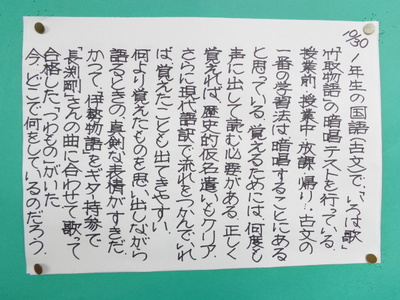 10/30 1年生の国語(古文)で、「いろは歌」
「竹取物語」の暗唱テストを行っている。
授業前、授業中、放課、帰り…古文の
一番の学習法は、暗唱することにある
と思っている。覚えるためには、何度も
声に出して読む必要がある。正しく
覚えれば、歴史的仮名遣いもクリア。
さらに現代語訳で流れをつかんでいれ
ば、覚えたことも出てきやすい。
何より覚えたものを思い出しながら
語るときの真剣な表情がすきだ。
かつて、伊勢物語をギター持参で
「長渕剛」さんの曲に合わせて歌って
合格した「つわもの」がいた。
今、どこで何をしているのだろう。